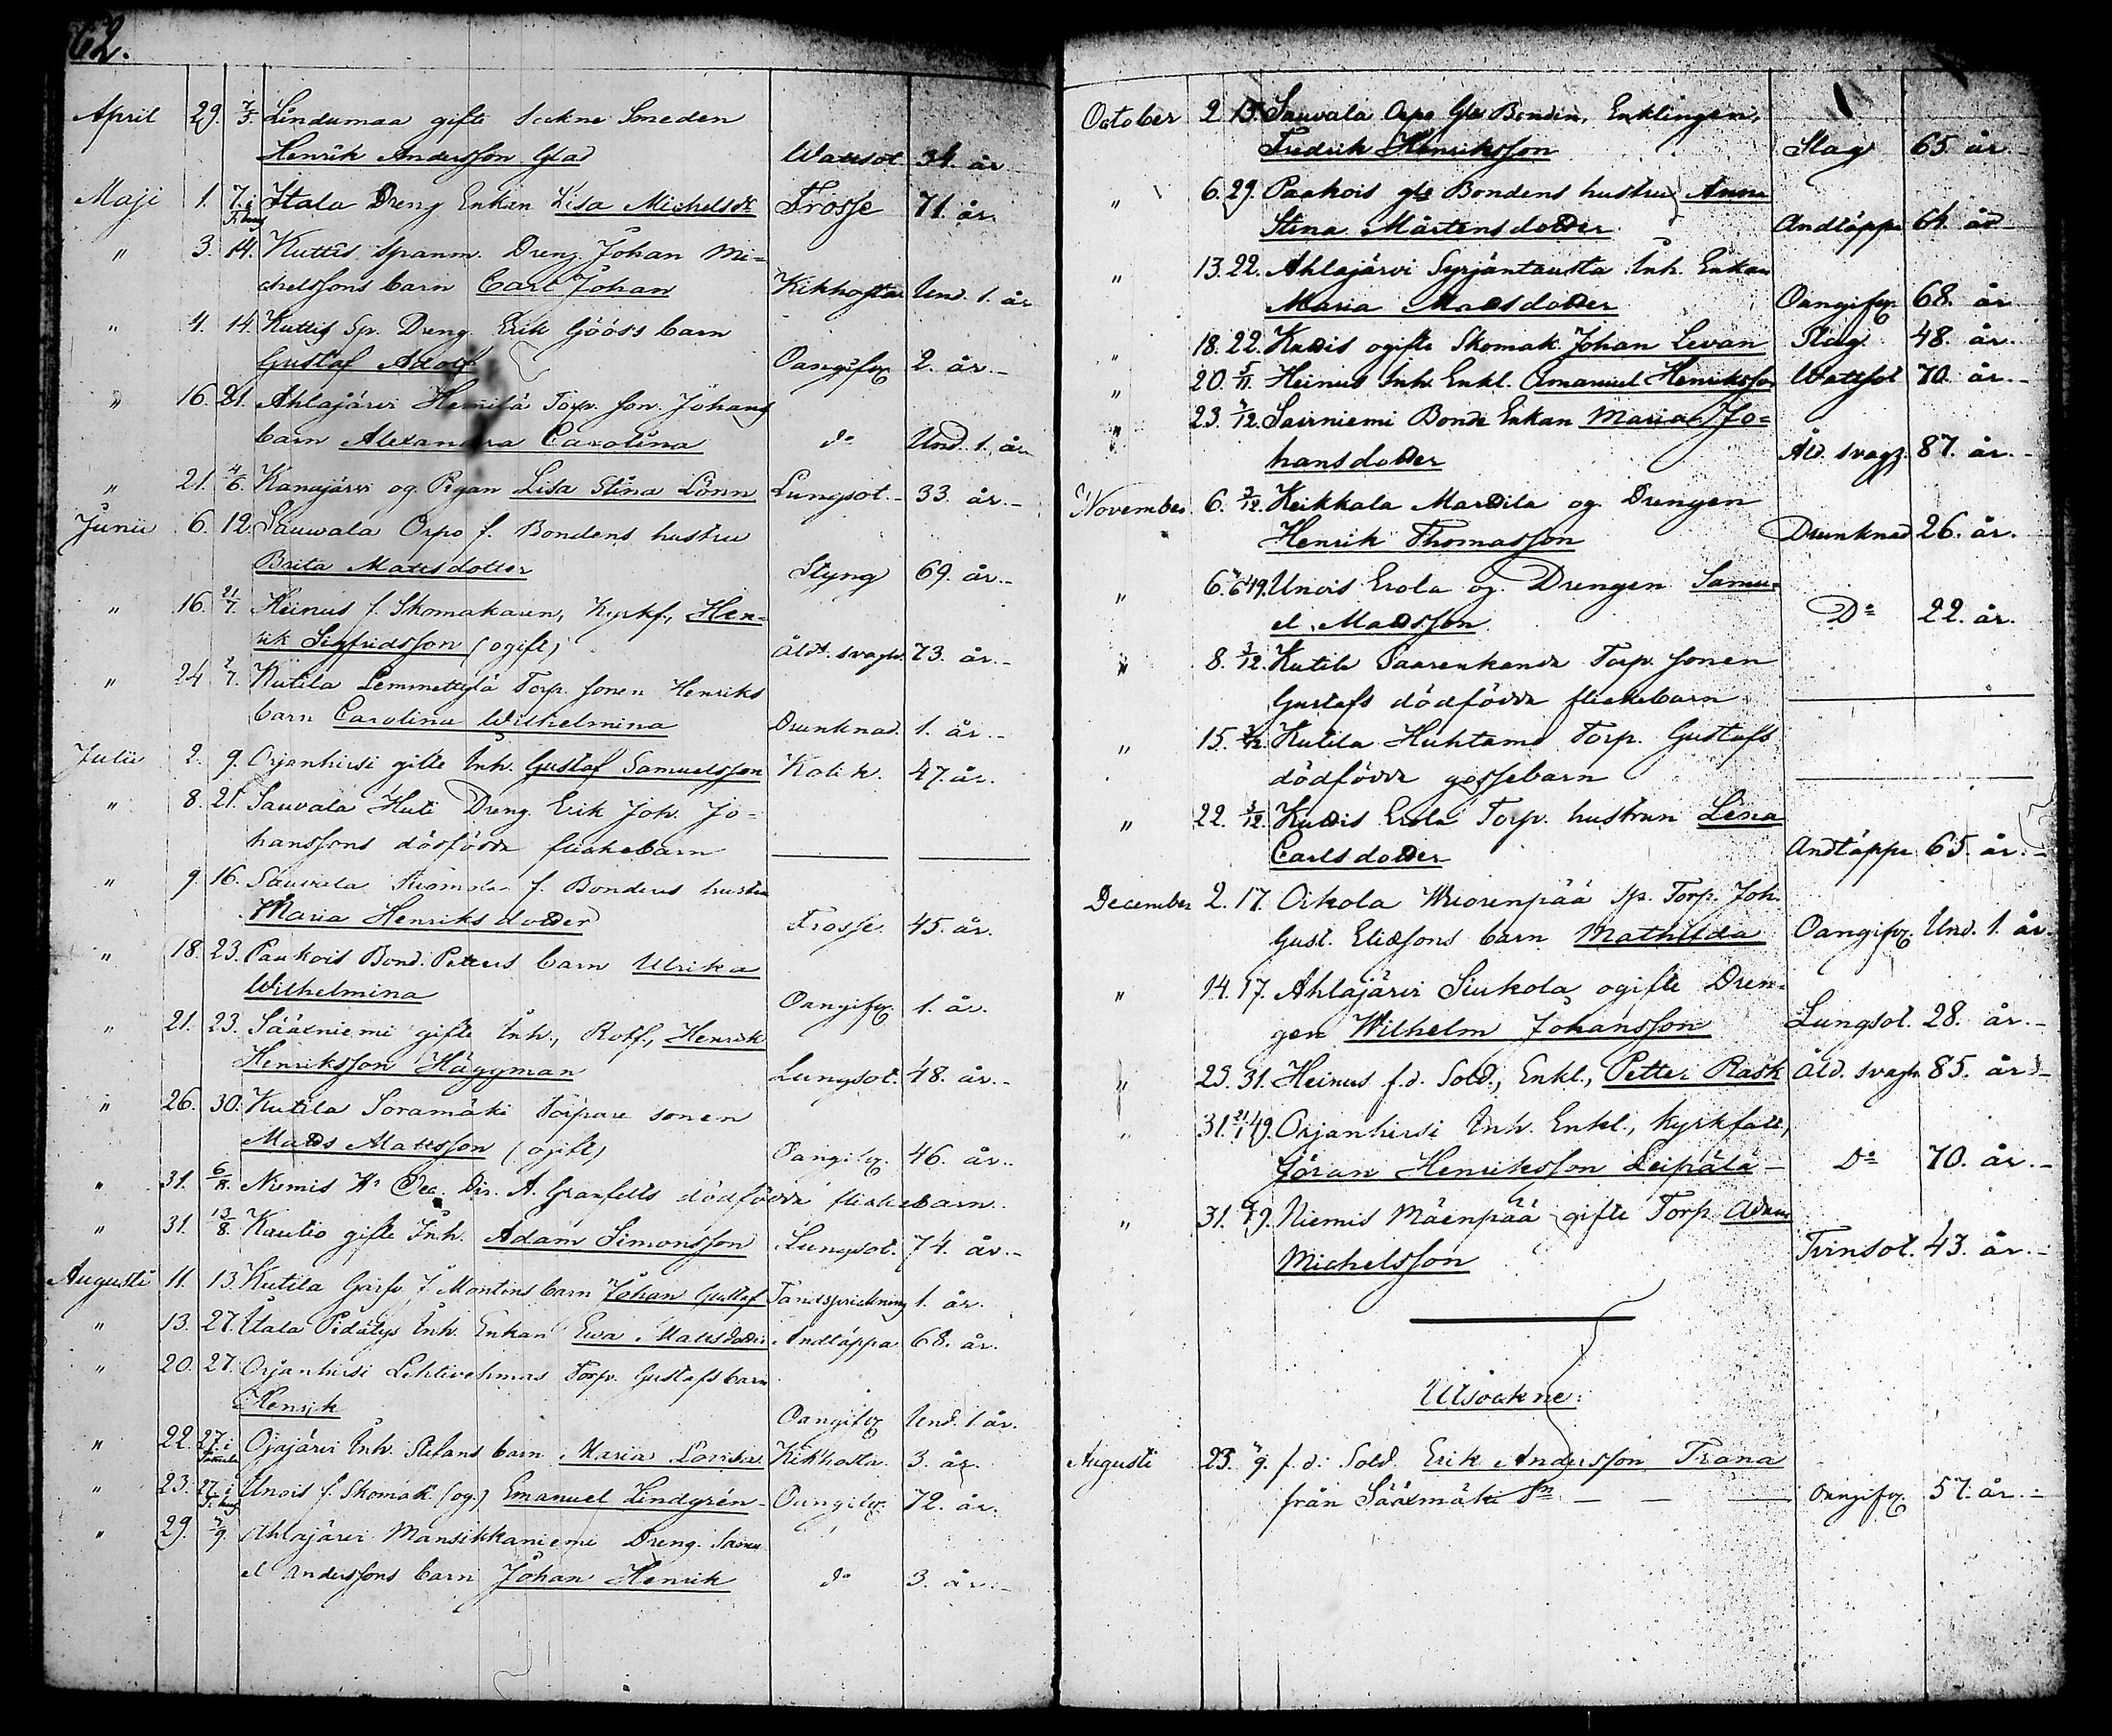 62.
April 29. 7/5. Lindumaa gifte Sockne Smeden
Henrik Andersson Glad Wattsot. 34. år
Maji 1. 7. i T. hus Itala Dreng Enkan Lisa Michelsdr Frosse 71. år.
" 3. 14. Kuttis Spanm. Dreng Johan Mi=
chelssons barn Carl Johan Kikhosta Und. 1. år
" 4. 14. Kuttis Sp. Dreng Erik Gööss barn
Gustaf Adolf Oangifv. 2. år.-
" 16. 21. Ahlajärvi Torp. son Johans
barn Alexandra Carolina do Und. 1. år
" 21. 4/6. Kanajärvi og. Pigan Lisa Stina Lönn Lungsot.- 33. år.-
Junii 6. 12. Sauvala Orpo f. Bondens hustru
Brita Mattsdotter Styng 69. år.-
" 16. 21/7. Heinus f. Skomakaren, Kyrkf., Hen=
rik Sigfridsson (ogift) Åld. svagh. 73. år.-
" 24 2/7. Kutila Lemmettylä Torp. sonen Henriks
barn Carolina Wilhelmina Drunknad. 1. år.-
Julii 2. 9. Orjanhirsi gifte Inh. Gustaf Samuelsson Kolik. 47. år.
" 8. 21. Sauvala Huti Dreng Erik Joh. Jo=
hanssons dödfödda flickebarn
" 9. 16. Sauvala f. Bondens hustru
Maria Henriksdotter Frosse. 45. år.
" 18. 23. Paukois Bond. Petters barn Ulrika
Wilhelmina Oangifv. 1. år.
" 21. 23. Sääxniemi gifte Inh., Rotf., Henrik
Henriksson Häggman Lungsot. 48. år.-
" 26. 30. Kutila Soramäki Torpare sonen
Matts Mattsson (ogift) Oangifv. 46. år.
" 31. 6/8. Niemis Hr Oec. Dir. A. Granfelts dödfödda flickebarn.
" 31. 13/8. Kautio gifte Inh. Adam Simonsson Lungsot. 74. år.-
Augusti 11. 13. Kutila Garfv. J. Montins barn Johan Gustaf Tandsprickning 1. år.
" 13. 27. Itala Pidätys Inh. Enkan Ewa Mattsdotter Andtäppa 68. år.
" 20. 27. Orjanhirsi Lehtivehmas Torp. Gustafs barn
Henrik Oangifv Und. 1 år.
" 22. 27. i Ojajärvi Inh. Stefans barn Maria Lovisa Kikhosta. 3. år.
" 23. 27. i T. hus Unois f. Skomak. (og.) Emanuel Lindgrén Oangifv. 72. år.
" 29. 3/9. Ahlajärvi Mansikkaniemi Dreng Samu
el Anderssons barn Johan Henrik do 3. år.-
October 2 15. Sauvala Orpo Gle Bonden, Enklingen,
Fredrik Henriksson Slag 65. år.-
" 6. 29. Paukois gle Bondens hustru Anna
Stina Mårtensdotter Andtäppa 64. år.-
" 13. 22. Ahlajärvi Syrjäntausta Inh. Enkan
Maria Mattsdotter Oangifv. 68. år
" 18. 22. Kuttis ogifte Skomak. Johan Levan Slag. 48. år.
" 20. 5/11. Heinus Inh. Enkl. Emanuel Henriksson Wattsot 70. år.-
" 23. 3/12. Sairniemi Bonde Enkan Maria Jo=
hansdotter Åld. svagh. 87. år.-
November 6. 3/12. Keikkala Marttila og. Drengen
Henrik Thomasson Drunknad 26. år.
" 6. Unois Erola og. Drengen Samu=
el Mattsson Do 22. år.
" 8. 3/12. Kutila Saarenkanda Torp. sonen
Gustafs dödfödda flickebarn
" 15. 3/12. Kutila Huhtamo Torp. Gustafs
dödfödda gossebarn
" 22. 3/12. Kuttis Erola Torp. hustrun Lena
Carlsdotter Andtäppa 65. år.-
December 2. 17. Oikola Wuorenpää sp. Torp. Joh.
Gust. Eliæsons barn Mathilda Oangifv. Und. 1. år.
" 14. 17. Ahlajärvi Siukola ogifte Dren=
gen Wilhelm Johansson Lungsot. 28. år.-
" 25. 31. Heinus f.d. Sold., Enkl., Petter Rask Åld. svagh 85. år.-
" 31. 21/1 49. Orjanhirsi Inh. Enkl., Kyrkfatt.,
Göran Henriksson Leipälä - Do 70. år.-
" 31. Niemis Mäenpää gifte Torp. Adam
Michelsson Tvinsot. 43. år.-
Utsockne:
Augusti 23. 3/9. f.d. Sold. Erik Andersson Trana
från Sääxmäki Sn - - - Oangifv. 57. år.-